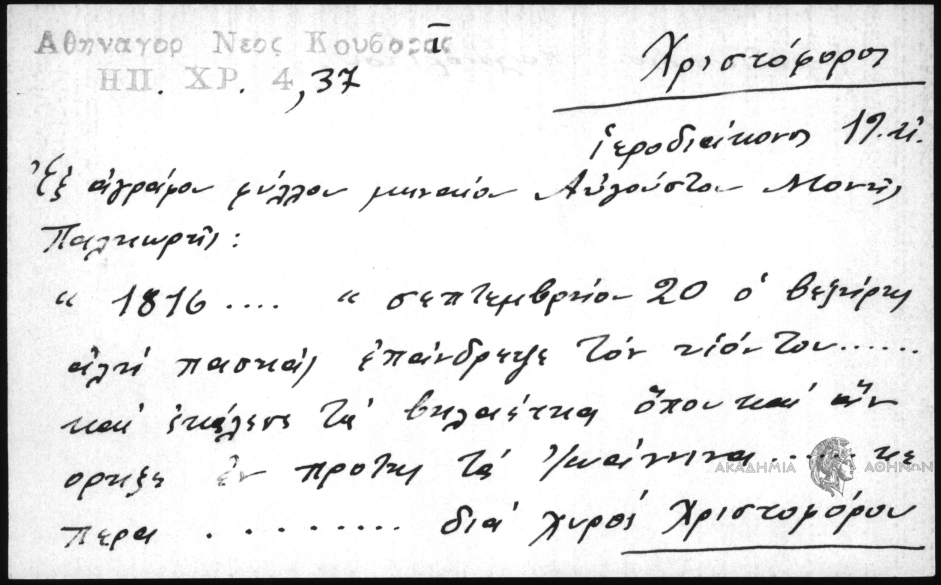 Αθηναγορ Νεος Κουβαρας Ι
ΗΠ. ΧΡ. 4, 37
Χριστόφορος
ἱεροδιάκονος 19. αἰ.
Ἐξ ἀγράφου φύλλου μηναίου Αὐγούστου Μονῆς
Παληωρῆς:
" 1816 .... " σεπτεμβρηίου 20 ὁ βεζήρης
ἀλή πασιάς ἐπάνδρεψε τόν υἱόν του ......
καί ἐκάλεσε τά βηλαέτια ὅπου καί ἄν
ορηζε ἐν προτης τά Ἰωάννινα ...... κε
περα ......... διά χυρός Χριστοφόρου
ΑΚΑΔΗΜΙΑ ΑΘΗΝΩΝ